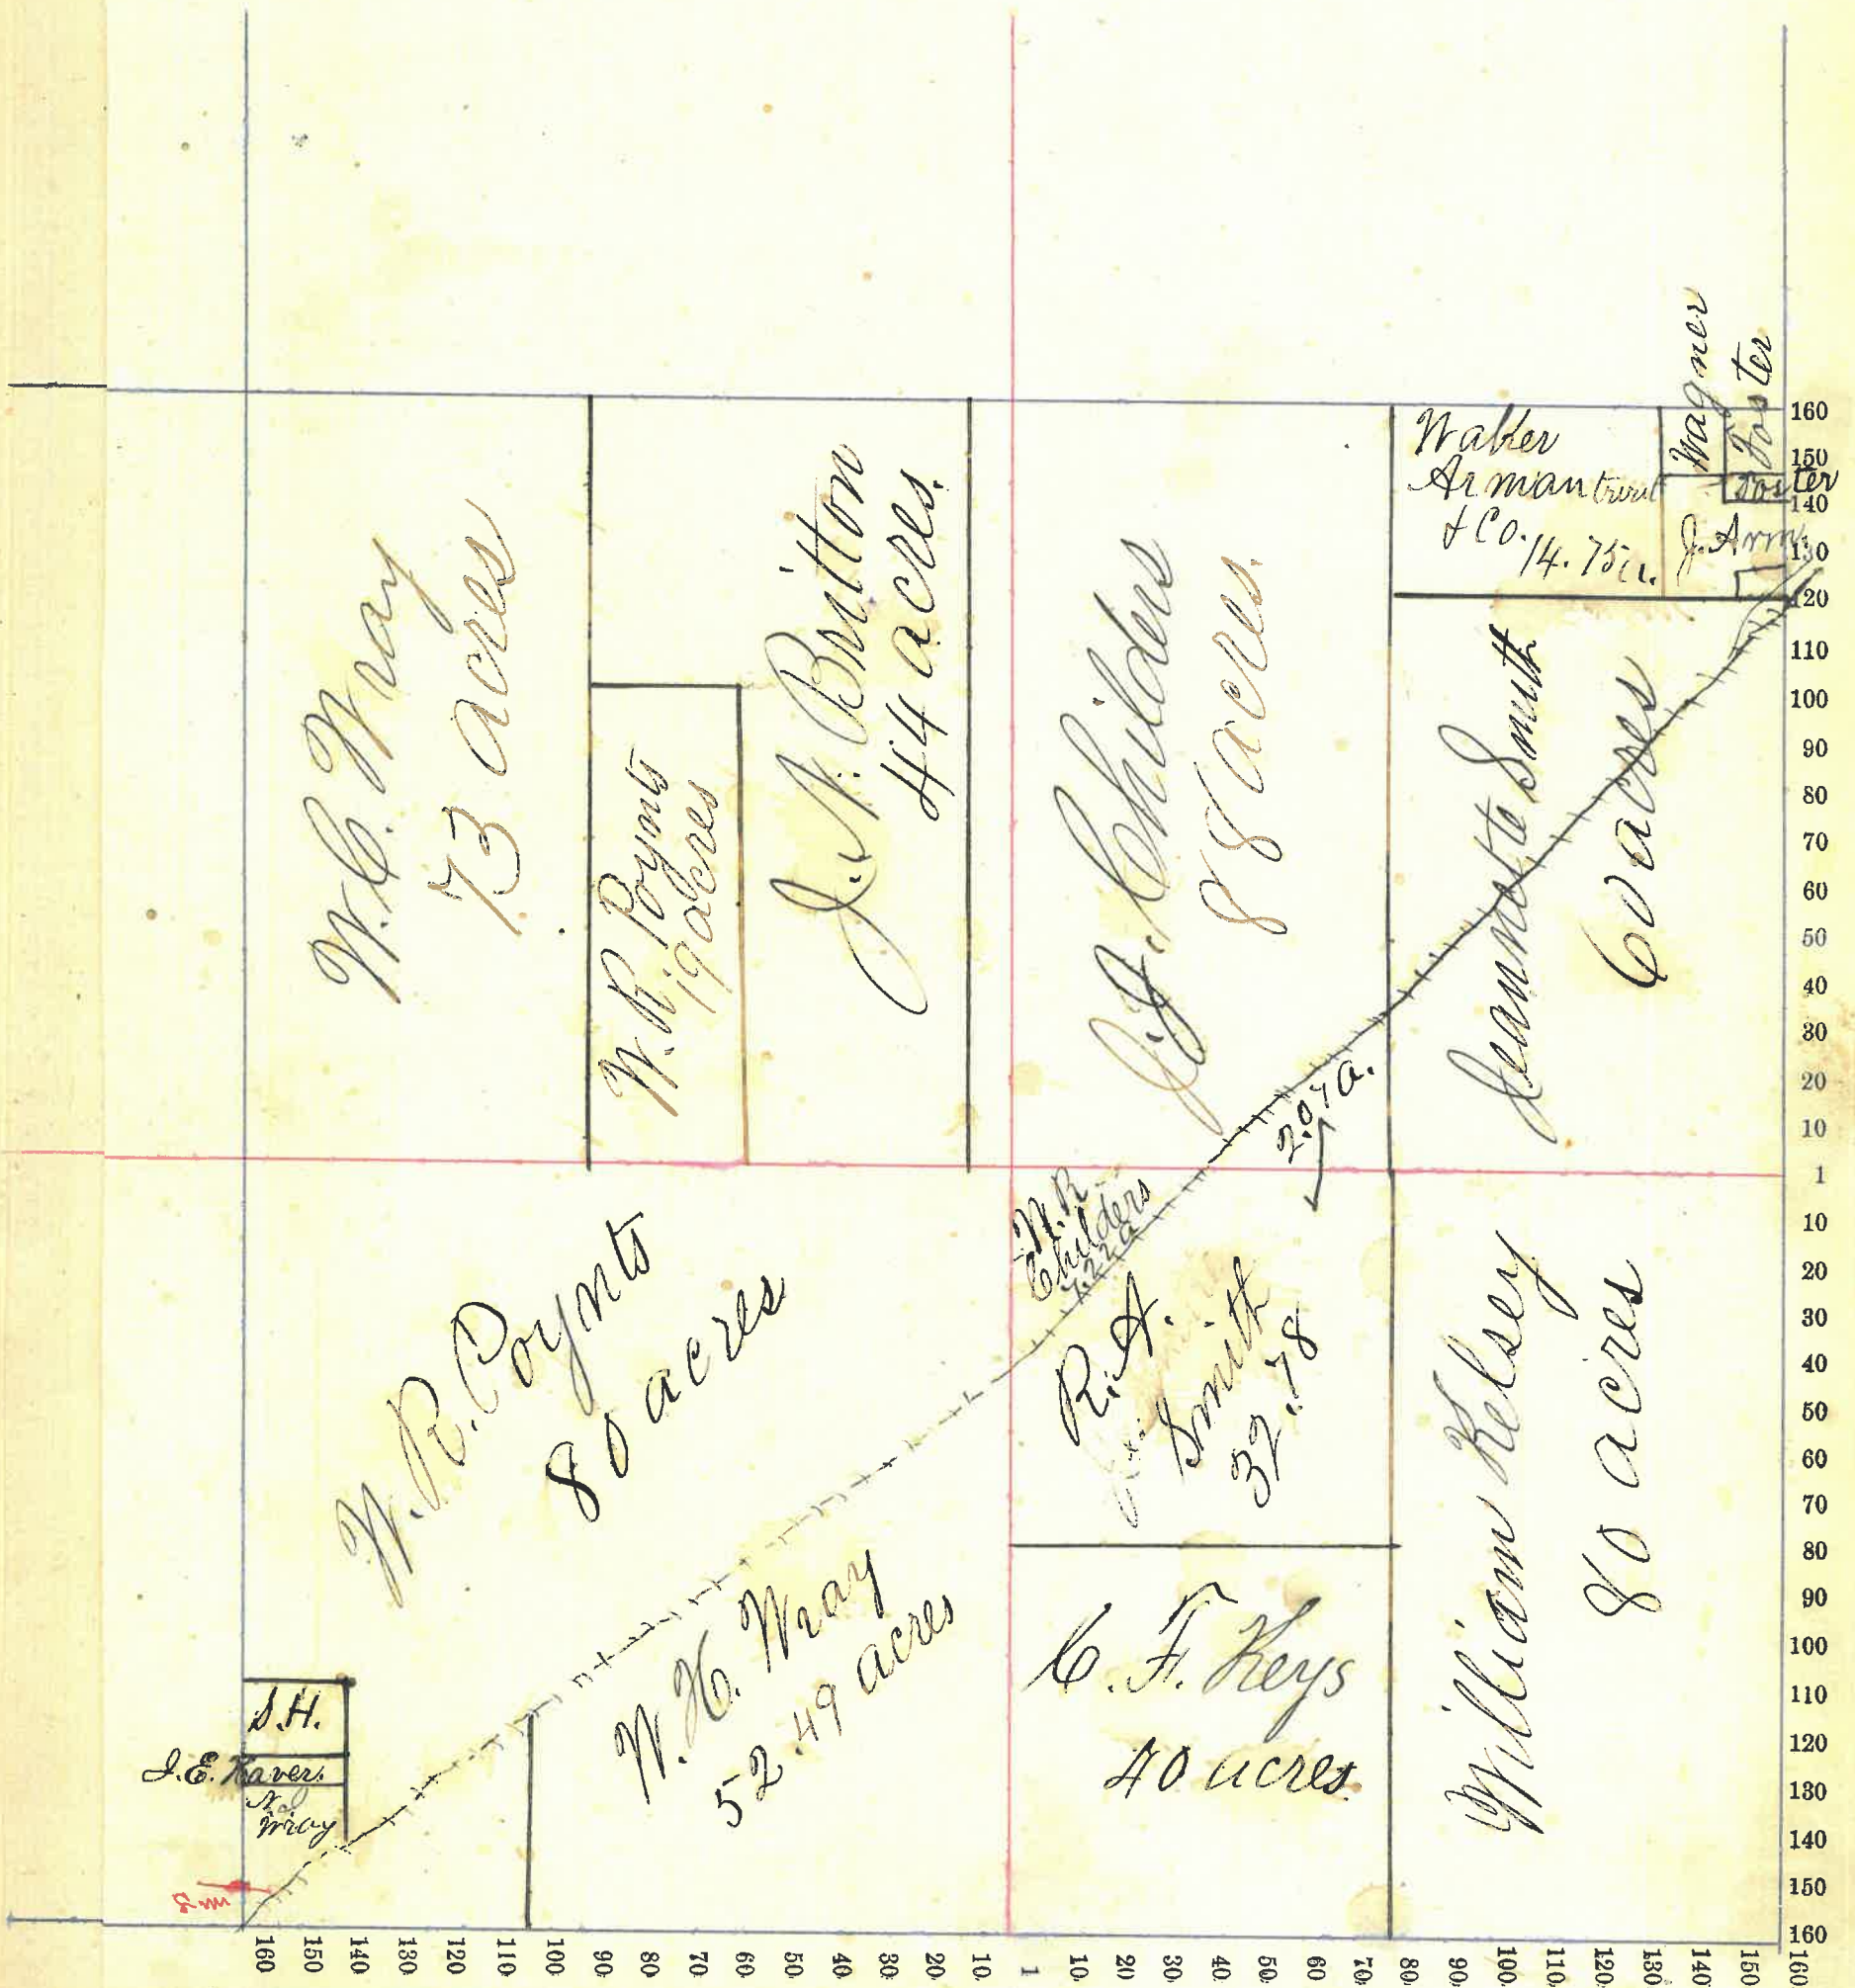 W.C. Wray
73 acres
W. R. Poynts
19 acres
J. N. Britton
44 acres.
J. J. Childers
88 acres.
Walker
& Co. 14.75a.
Wagner
Foster
Foster
J. Arm.
Jeannette Smith
60 acres
2.07 a.
W. R. Poynts
80 acres
N. R.
Childers
7.22a
R. A.
Smith
32.78
William Kelsey
80 acres
C. F. Keys
40 acres
W. H. Wray
52.49 acres
S.H.
Wray
160
150
140
130
120
110
100
90
80
70
60
50
40
30
20
10
1
10
20
30
40
50
60
70
80
90
100
110
120
130
140
150
160
160 150 140 130 120 110 100 90 80 70 60 50 40 30 20 10 1 10 20 30 40 50 60 70 80 90 100 110 120 130 140 150 160